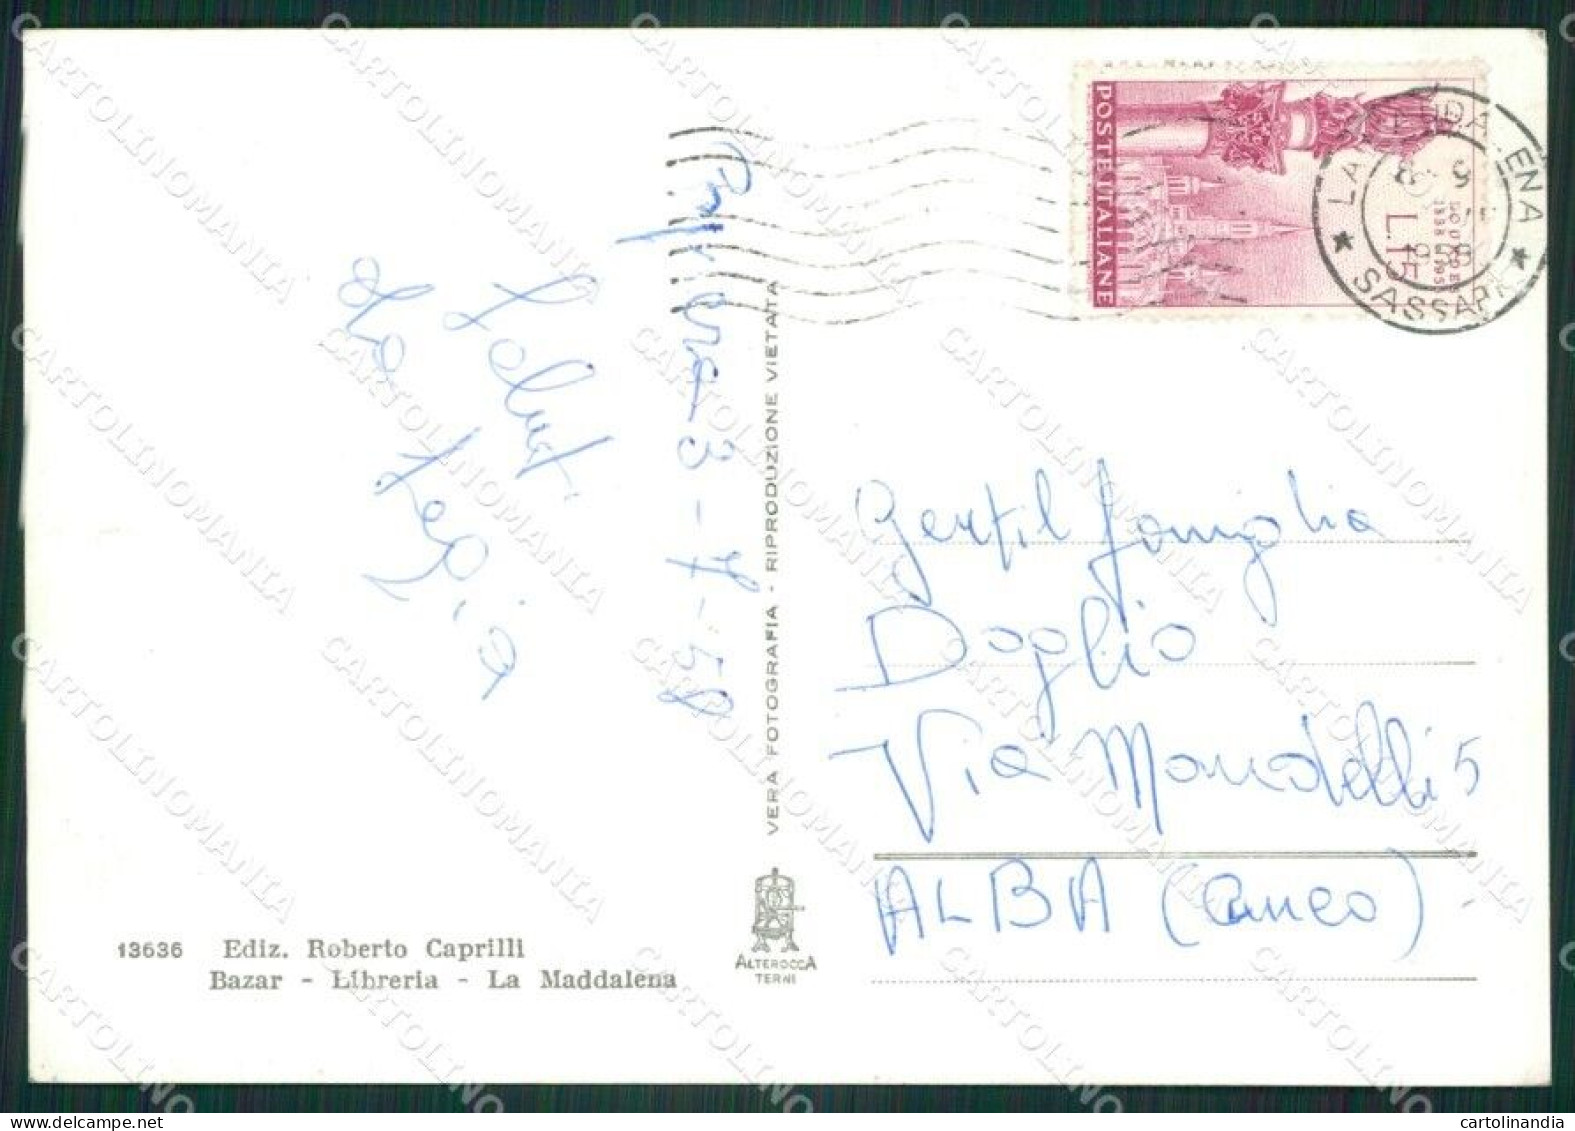 POSTE ITALIANE
L.15
LA MADDALENA
★ SASSARI ★
Caprera 3-7-58
Saluti
da
VERA FOTOGRAFIA - RIPRODUZIONE VIETATA
Gentil famiglia
Doglio
Via Mandelli 5
ALBA (Cuneo)
13636 Ediz. Roberto Caprilli
Bazar - Libreria - La Maddalena
ALTEROCCA
TERNI
CARTOLINOMANIA
cartolinandia